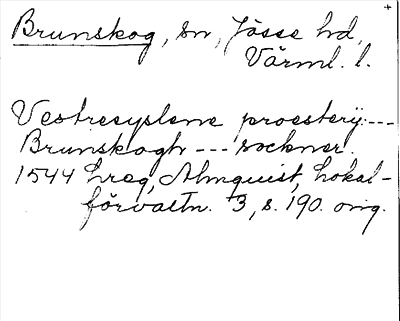 Brunskog, sn, Jösse hd,
Värml. l.
Vestresyslene proestery ---
Brunskogh --- sockner.
1544 Lreg, Almquist, Lokal-
förvaltn. 3, s. 190. orig.